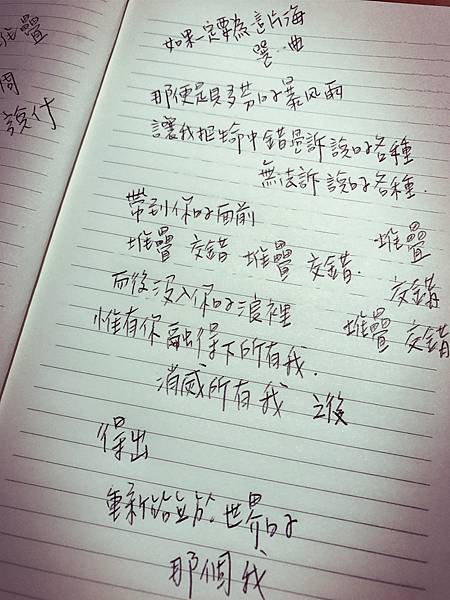 如果一定要為這片海
選曲
那便是貝多芬的暴風雨
讓我把生命中錯疊訴說的各種
無法訴說的各種.
帶到你的面前
堆疊 交錯 堆疊 交錯.
堆疊
交錯
堆疊 交錯
而後沒入你的浪裡
惟有你融得下所有我.
消滅所有我 之後
得出
重新站於世界的
那個我